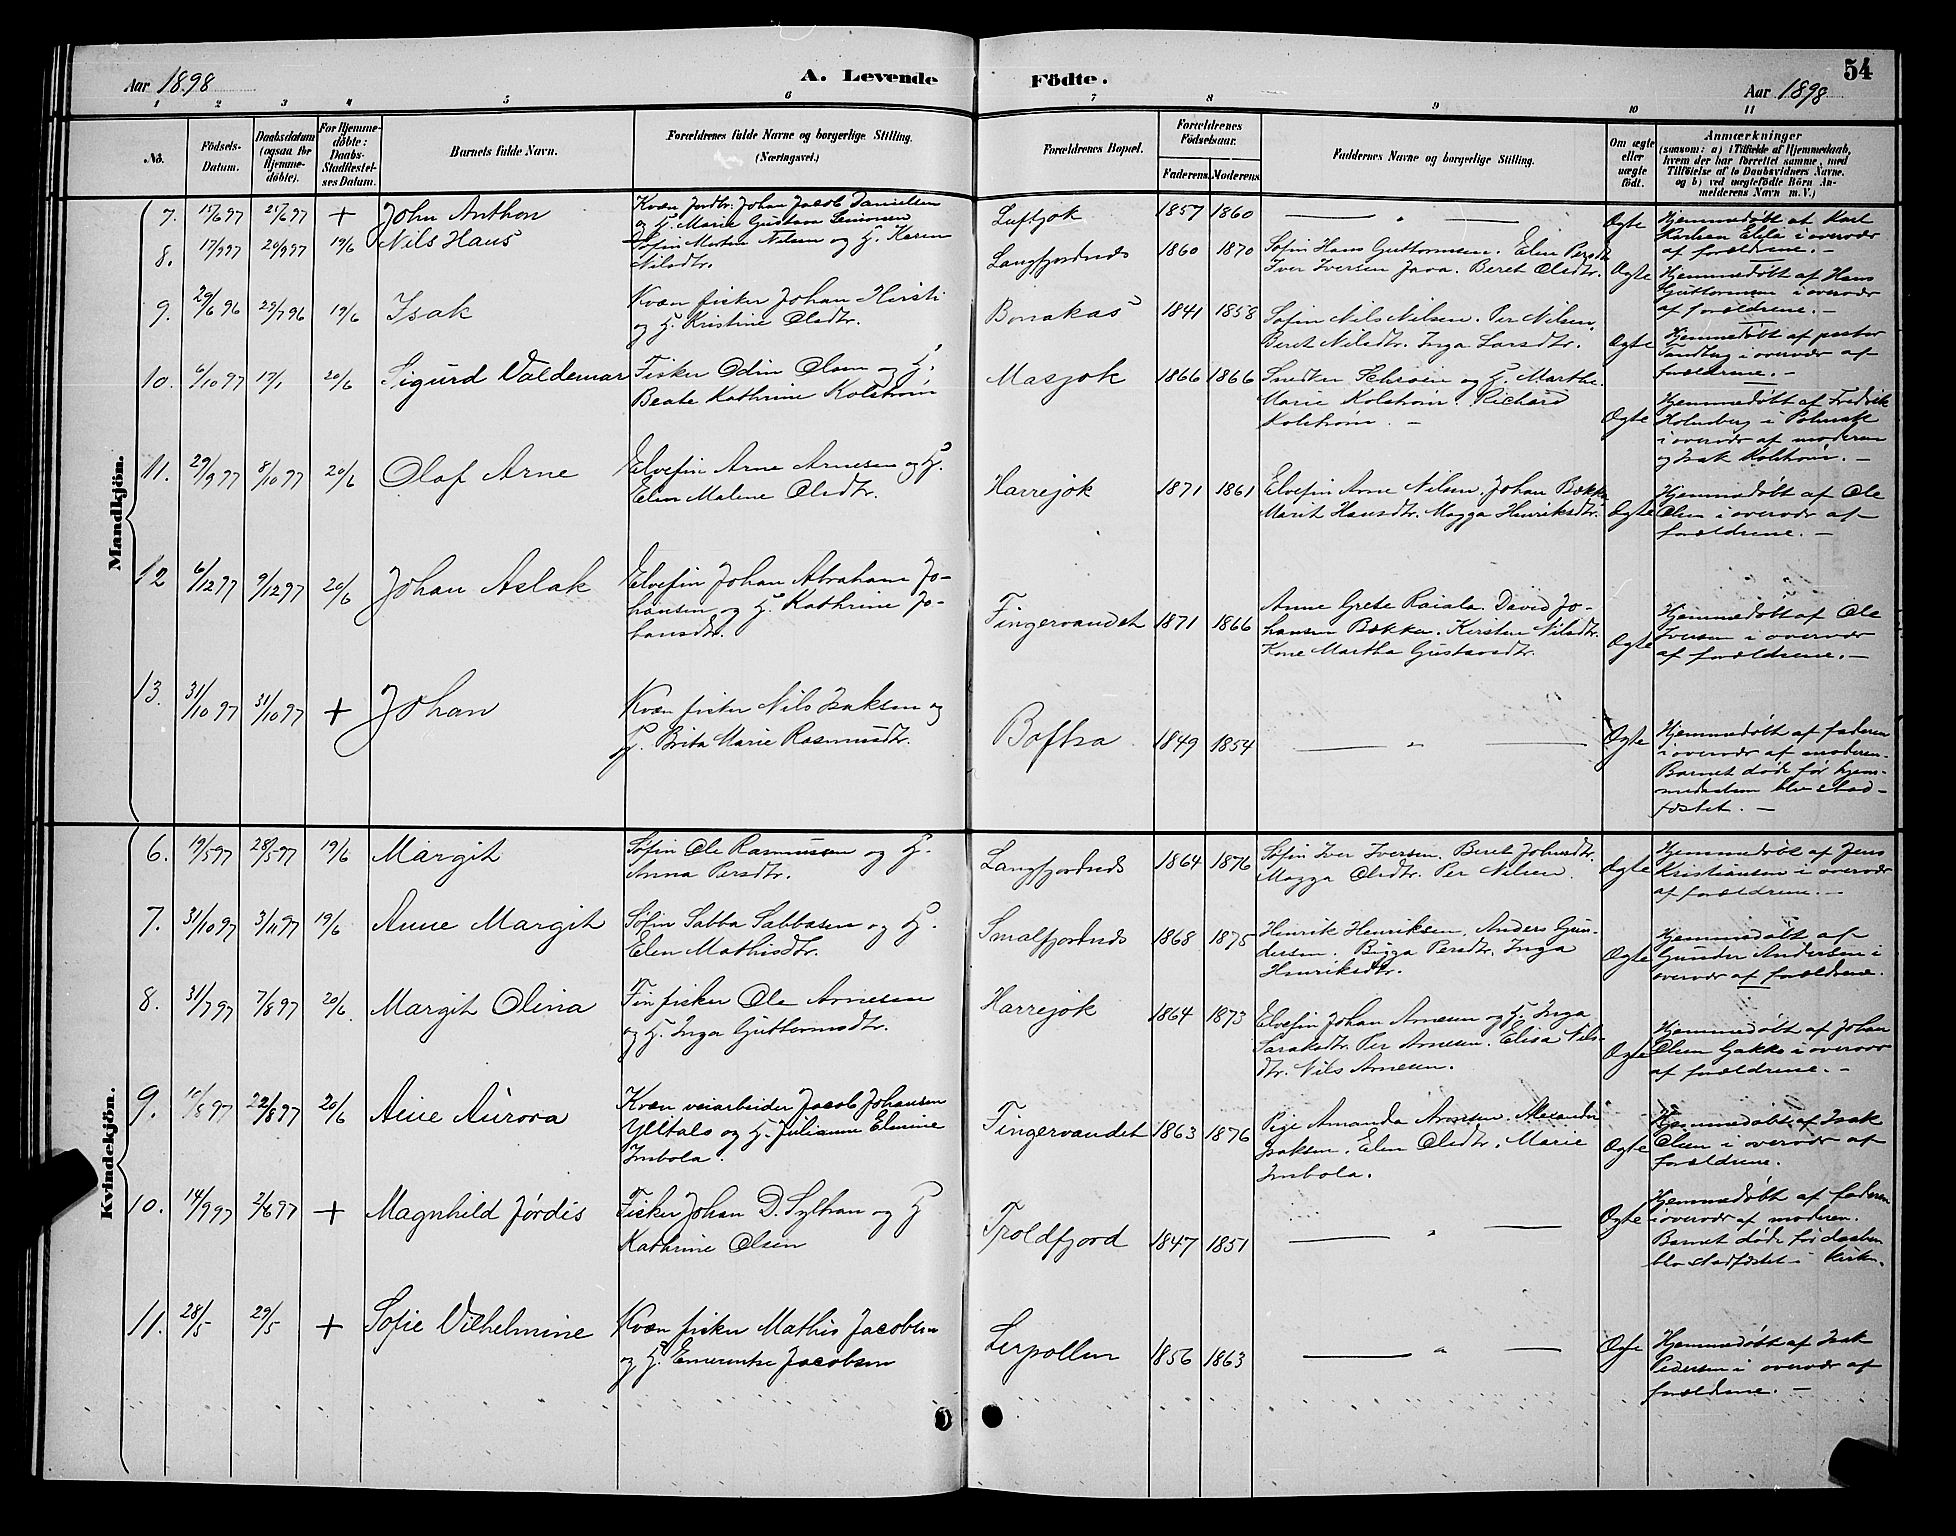 Aar 1898
A. Levende
Födte.
54
Aar 1898
1 2 3 4 5 6 7 8 9 10 11
No.
Födsels-
Datum.
Daabsdatum
(ogsaa for
Hjemme-
döbte).
For Hjemme-
döbte:
Daabs-
Stadfæstel-
ses Datum.
Barnets fulde Navn.
Forældrenes fulde Navne og borgerlige Stilling.
(Næringsvei.)
Forældrenes Bopæl.
Forældrenes
Födselsaar.
Faderens. Moderens.
Faddernes Navne og borgerlige Stilling.
Om ægte
eller
uægte
födt.
Anmærkninger
(saasom: a) i Tilfælde af Hjemmedaab,
hvem der har forrettet samme, med
Tilföielse af to Daabsvidners Navne.
og b) ved uægtefödte Börn An-
melderens Navn m. V.)
Mandkjön.
7. 21/6 97 + John Anthon
Kvæn Jordbr. Johan Jacob Danielsen
og H. Marie Gustava Simonsen
Luftjok 1857 1860 — „ — Ægte
Hjemmedøbt af Karl
Karlsen i overvær
af forældrene. —
8. 17/9 97 20/9 97 19/6 Nils Hans
Søfin Morten Nilsen og H. Karen
Nilsdtr.
Langfjordnæs 1860 1870
Søfin Hans Guttormsen. Elen Persdtr.
Iver Iversen Java. Beret Olsdtr.
Ægte
Hjemmedøbt af Hans
Guttormsen i overvær
af forældrene. —
9. 29/6 96 29/7 96 19/6 Isak
Kvæn fisker Johan Hirsti
og H. Kristine Olsdtr.
Bonakas 1841 1858
Søfin Nils Nilsen. Per Nilsen.
Beret Nilsdtr. Inga Larsdtr.
Ægte
Hjemmedøbt af pastor
Tandberg i overvær af
forældrene. —
10. 6/10 97 17/1 20/6 Sigurd Valdemar
Fisker Odin Olsen og H.
Beate Kathrine Kolstrøm
Masjok 1866 1866
Schrøen og H. Marthe
Marie Kolstrøm. Richard
Kolstrøm. —
Ægte
Hjemmedøbt af Fredrik
Holmberg i Polmak
i overvær af moderen
og Isak Kolstrøm. —
11. 29/9 97 8/10 97 20/6 Olaf Arne
Elvefin Arne Arnesen og H.
Elen Malene Olsdtr.
Harrejok 1871 1861
Elvefin Arne Nilsen. Johan Bække
Marit Hansdtr. Magga Henriksdtr.
Ægte
Hjemmedøbt af Ole
Olsen i overvær af
forældrene. —
12 6/12 97 9/12 97 20/6 Johan Aslak
Elvefin Johan Abraham Jo-
hansen og H. Kathrine Jo-
hansdtr.
Fingervandet 1871 1866
Anne Grete Raiala. David Jo-
hansen Bække. Kirsten Nilsdtr.
Kone Martha Gustavsdtr.
Ægte
Hjemmedøbt af Ole
Iversen i overvær
af forældrene. —
13. 31/10 97 31/10 97 + Johan
Kvæn fisker Nils Isaksen og
H. Brita Marie Rasmusdtr.
Boftsa 1849 1854 — „ — Ægte
Hjemmedøbt af faderen
i overvær af moderen.
Barnet døde før hjem-
medaaben blev stad-
fæstet. —
Kvindekjön.
6. 19/5 97 28/5 97 19/6 Margit
Søfin Ole Rasmussen og H.
Anna Persdtr.
Langfjordnæs 1864 1876
Søfin Iver Iversen. Beret Johnsdtr.
Magga Olsdtr. Per Nilsen.
Ægte
Hjemmedøbt af Jens
Kristiansen i overvær
af forældrene. —
7. 31/10 97 3/11 97 19/6 Anne Margit
Søfin Sabba Sabbasen og H.
Elen Mathisdtr.
Smalfjordnæs 1868 1875
Henrik Henriksen. Anders Gun-
dersen. Bigga Persdtr. Inga
Henriksdtr.
Ægte
Hjemmedøbt af
Gunder Andersen i
overvær af forældrene.
8. 31/7 97 7/8 97 20/6 Margit Olina
Fin fisker Ole Arnesen
og H. Inga Guttormsdtr.
Harrejok 1864 1873
Elvefin Johan Arnesen og H. Inga
Saraksdtr. Per Arnesen. Elisa Nils-
dtr. Nils Arnesen.
Ægte
Hjemmedøbt af Johan
Olsen Gakko i overvær
af forældrene. —
9. 10/8 97 22/8 97 20/6 Aine Aurora
Kvæn veiarbeider Jacob Johansen
Ylitalo og H. Julianne Elmine
Imbola.
Fingervandet 1863 1876
Pige Amanda Arnesen. Alexander
Isaksen. Elen Olsdtr. Marie
Imbola.
Ægte
Hjemmedøbt af Isak
Olsen i overvær af
forældrene.
10. 14/9 97 2/6 97 + Magnhild Jørdis
Fisker Johan D. Sylhan og H
Kathrine Olsen
Troldfjord 1847 1851 — „ — Ægte
Hjemmedøbt af faderen
i overvær af moderen.
Barnet døde før daaben
blev stadfæstet i Kirken.
11. 28/5 29/5 + Sofie Vilhelmine
Kvæn fisker Mathis Jacobsen
og H. Emerentse Jacobsen
Lerpollen 1856 1863 — „ — Ægte
Hjemmedøbt af Isak
Pedersen i overvær af
forældrene. —